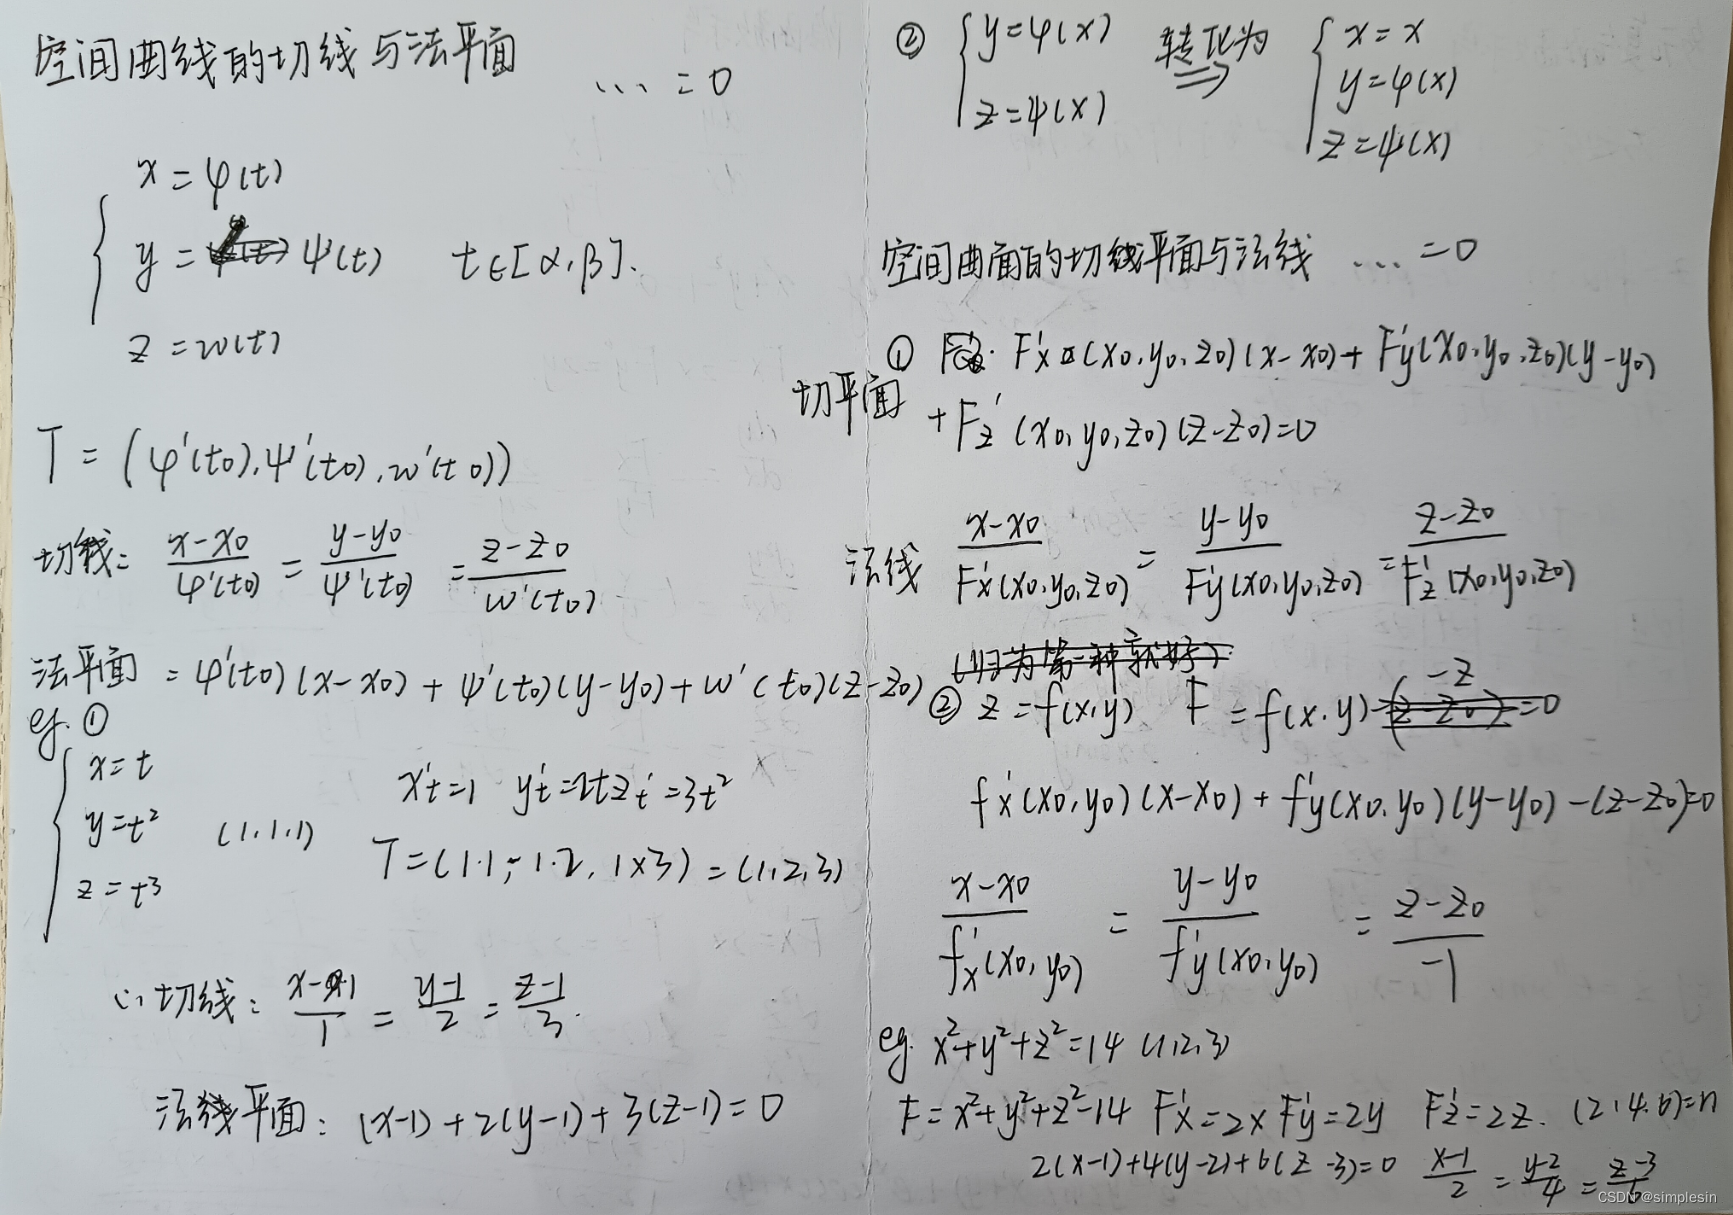 空间曲线的切线与法平面 ... = 0
x = φ(t)
y = ψ(t) t∈[α,β].
z = w(t)
T = (φ'(t0), ψ'(t0), w'(t0))
切线: (x-x0)/φ'(t0) = (y-y0)/ψ'(t0) = (z-z0)/w'(t0)
法平面 = φ'(t0)(x-x0) + ψ'(t0)(y-y0) + w'(t0)(z-z0)
eg. ①
x = t
y = t² (1,1,1)
z = t³
x't=1 y't=2t z't=3t²
T = (1·1, 1·2, 1×3) = (1,2,3)
∴切线: (x-1)/1 = (y-1)/2 = (z-1)/3.
法线平面: (x-1)+2(y-1)+3(z-1)=0
② y=φ(x) 转化为 x = x
z=ψ(x) ⇒ y=φ(x)
z=ψ(x)
空间曲面的切线平面与法线 ... =0
① F'x(x0,y0,z0)(x-x0)+F'y(x0,y0,z0)(y-y0)
切平面 +F'z(x0,y0,z0)(z-z0)=0
法线 (x-x0)/F'x(x0,y0,z0) = (y-y0)/F'y(x0,y0,z0) = (z-z0)/F'z(x0,y0,z0)
(归为第一种就好)
② z=f(x,y) F = f(x,y)-z=0
f'x(x0,y0)(x-x0)+f'y(x0,y0)(y-y0)-(z-z0)=0
(x-x0)/f'x(x0,y0) = (y-y0)/f'y(x0,y0) = (z-z0)/-1
eg. x²+y²+z²=14 (1,2,3)
F=x²+y²+z²-14 F'x=2x F'y=2y F'z=2z. (2,4,6)=n
2(x-1)+4(y-2)+6(z-3)=0 (x-1)/2 = (y-2)/4 = (z-3)/6
CSDN @simplesin